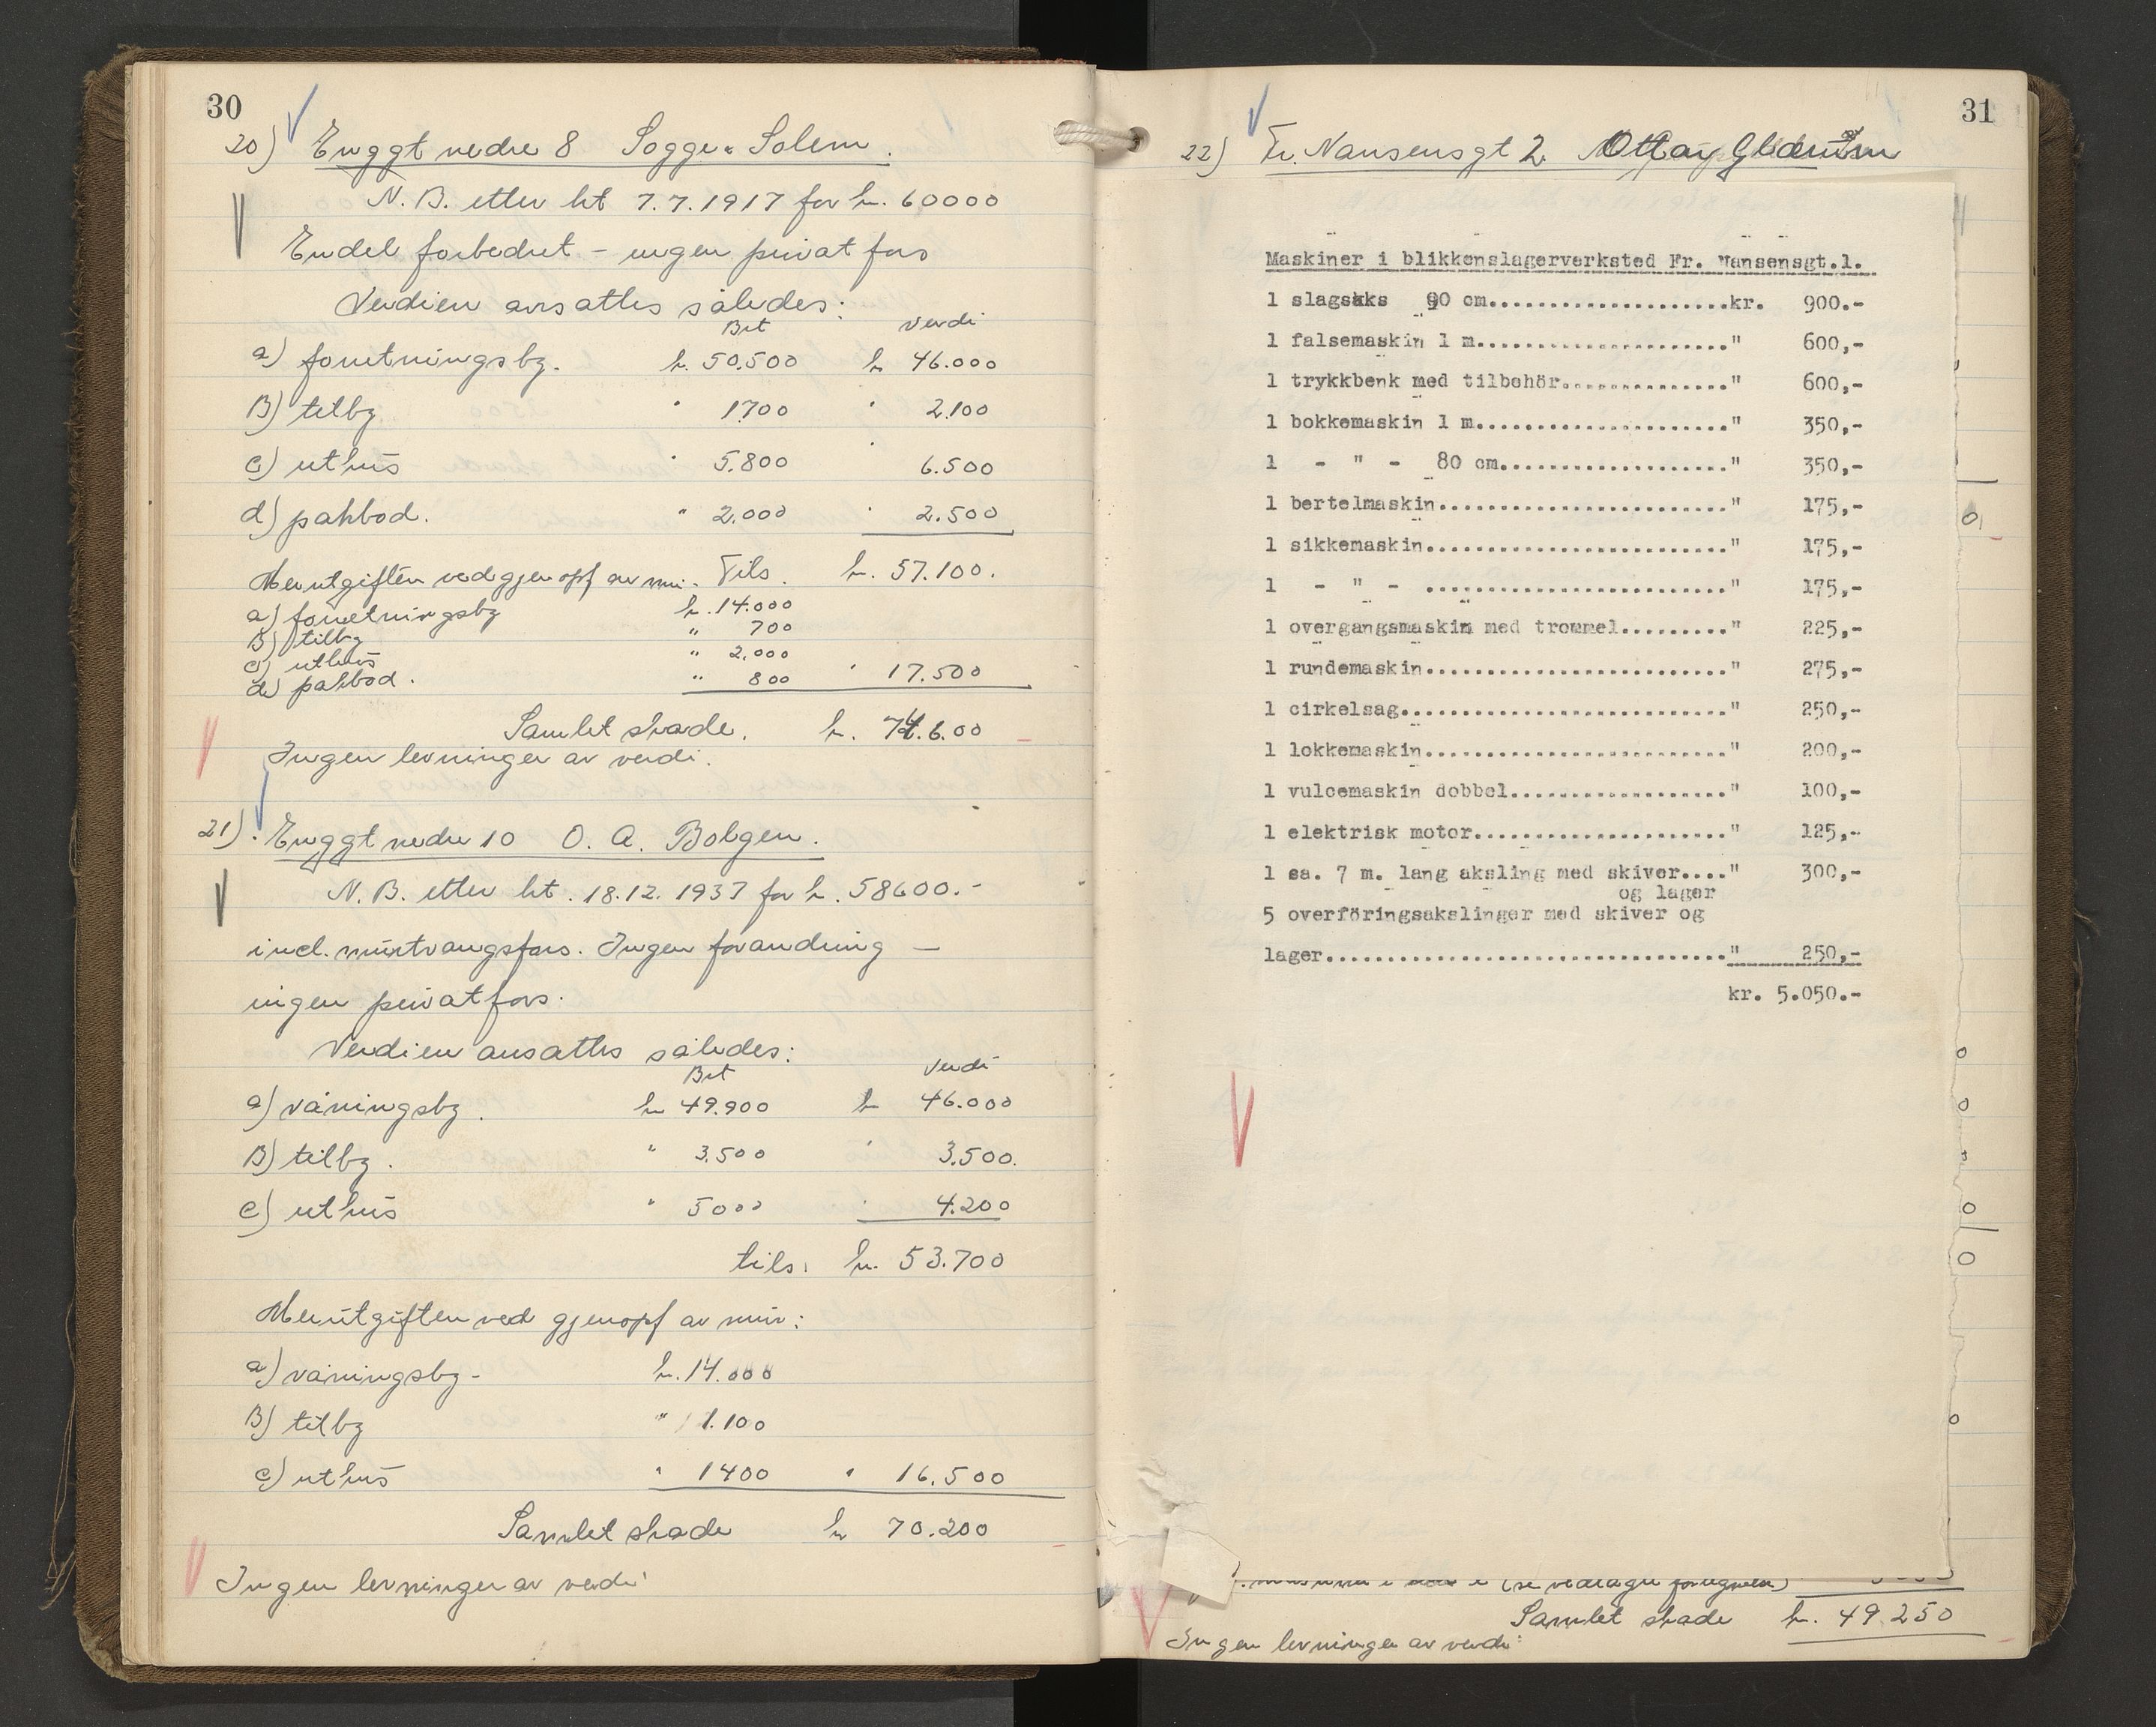 30
20) Enggt nedre 8 Sogge & Solem.
N. B. etter bt 7.7.1917 for kr. 60000
Endel forbedret – ingen privat fors
Verdien ansattes således:
Bet Verdi
a) forretningsbg. kr. 50.500 kr 46.000
B) tilbg " 1700 " 2.100
c) uthus " 5.800 " 6.500
d) pakbod. " 2.000 " 2.500
Merutgiften ved gjenopf av mur. Tils. kr. 57.100.
a) forretningsbg kr. 14.000
B) tilbg " 700
c) uthus " 2.000
d) pakbod. " 800 " 17.500
Samlet skade. kr. 74.6.00
Ingen levninger av verdi.
21) Enggt nedre 10 O. A. Bolgen.
N. B. etter bt. 18.12. 1937 for kr. 58600.-
incl. murtvangsfors. Ingen forandring –
ingen privat fors.
Verdien ansattes således:
Bet Verdi
a) våningsbg. kr 49.900 kr 46.000
B) tilbg. " 3.500 " 3.500.
c) uthus " 5000 " 4.200
tils. kr. 53.700
Merutgiften ved gjenopf av mur:
a) våningsbg - kr. 14.000
B) tilbg " 1.100
c) uthus " 1400 " 16.500
Samlet skade kr 70.200
Ingen levninger av verdi
31
22) Fr. Nansensgt 2
Maskiner i blikkenslagerverksted Fr. Nansensgt.1.
1 slagsaks 90 cm....................kr. 900.-
1 falsemaskin 1 m....................." 600,-
1 trykkbenk med tilbehör.............." 600,-
1 bokkemaskin 1 m....................." 350,-
1 - " - 80 cm..................." 350,-
1 bertelmaskin........................" 175,-
1 sikkemaskin........................." 175,-
1 - " - ........................." 175,-
1 overgangsmaskin med trommel........." 225,-
1 rundemaskin........................." 275,-
1 cirkelsag..........................." 250,-
1 lokkemaskin........................." 200,-
1 vulcemaskin dobbel.................." 100,-
1 elektrisk motor....................." 125,-
1 ca. 7 m. lang aksling med skiver...." 300,-
og lager
5 overföringsakslinger med skiver og
lager................................." 250,-
kr. 5.050.-
(se vedlagte fortegnelse)
Samlet skade kr. 49.250
Ingen levninger av verdi